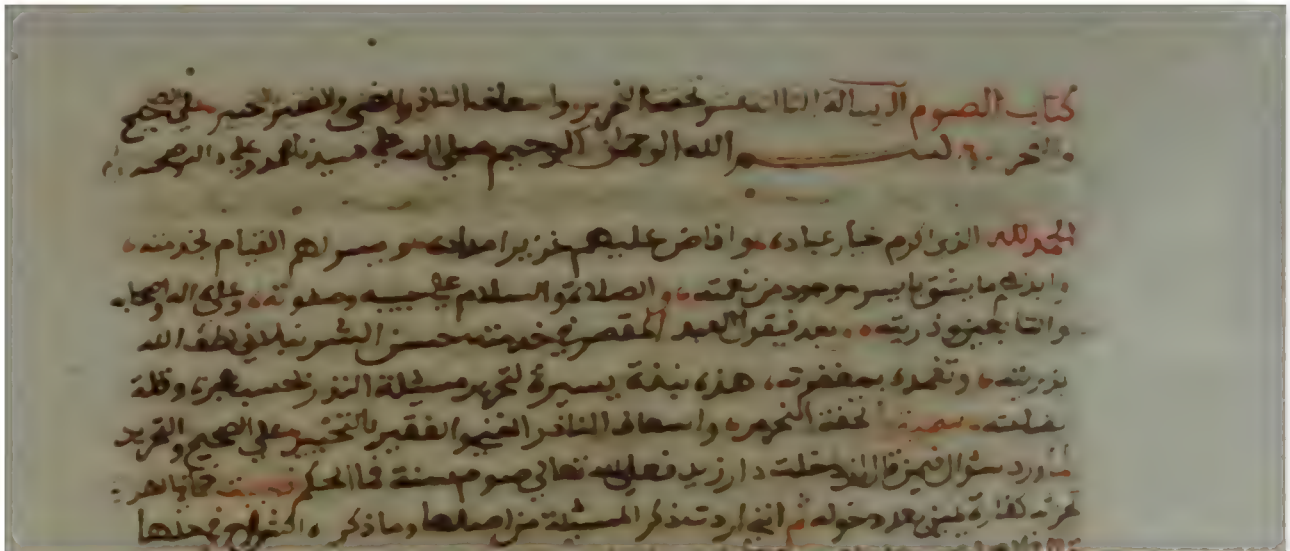 كتاب الصوم الرسالة الثالثة عشر تحفة التحرير واسعاف الناذر الغني والفقير بالتخيير على الصحيح
والتحرير بسم الله الرحمن الرحيم صلى الله على سيدنا محمد وعلى اله وصحبه
الحمد لله الذي اكرم خيار عباده وافاض عليهم غزير امداده ويسر لهم القيام لخدمته
وابدلهم ما يشق بايسر موجود من نعمته والصلاة والسلام على حبيبه وصفوته وعلى اله واصحابه
والتابعين وذريته بعد فيقول العبد المقصر في خدمته حسن الشرنبلالي لطف الله
بذريته وتغمده بمغفرته هذه نبذة يسيرة لتحرير مسئلة النذر بحسب وقلة
بضاعته سميتها تحفة التحرير واسعاف الناذر الغني والفقير بالتخيير على الصحيح والتحرير
لما ورد سؤال فيمن قال ان دخلت دار زيد فعلي لله تعالى صوم سنة فما الحكم
كفارة يمين بعد دخوله ثم اني اردت ذكر المسئلة من اصلها وما ذكره الشراح في محلها